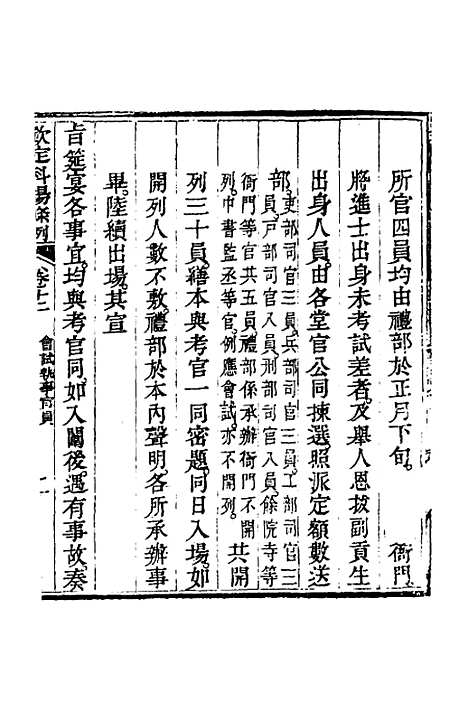 所官四員均由禮部於正月下旬。　衙門。
將進士出身未考試差者。及舉人恩拔副貢生
出身人員。由各堂官公同揀選。照派定額數送
部。吏部司官三員。兵部司官三員。工部司官三
員。戶部司官入員。刑部司官入員。餘院寺等
衙門等官共五員。禮部係承辦衙門不開
列。中書監丞等官。例應會試。亦不開列。共開
列三十員。繕本與考官一同密題。同日入場。如
開列人數不敷。禮部於本內聲明。各所承辦事
畢。陸續出場。其宣
旨筵宴各事宜。均與考官同。如入闈後。遇有事故。奏
欽定科場條例　卷十二　會試執事官員